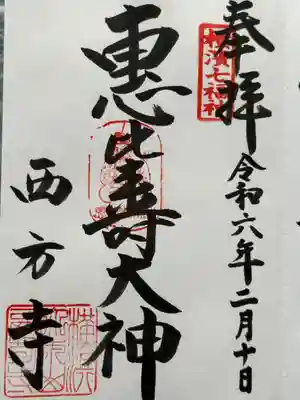 奉拝
横濱七福神
令和六年二月十日
惠比壽大神
西方寺